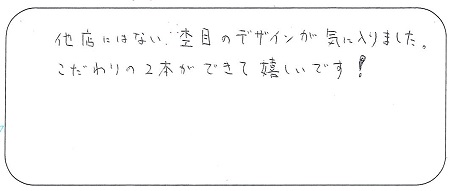 他店にはない、杢目のデザインが気に入りました。
こだわりの2本ができて嬉しいです!